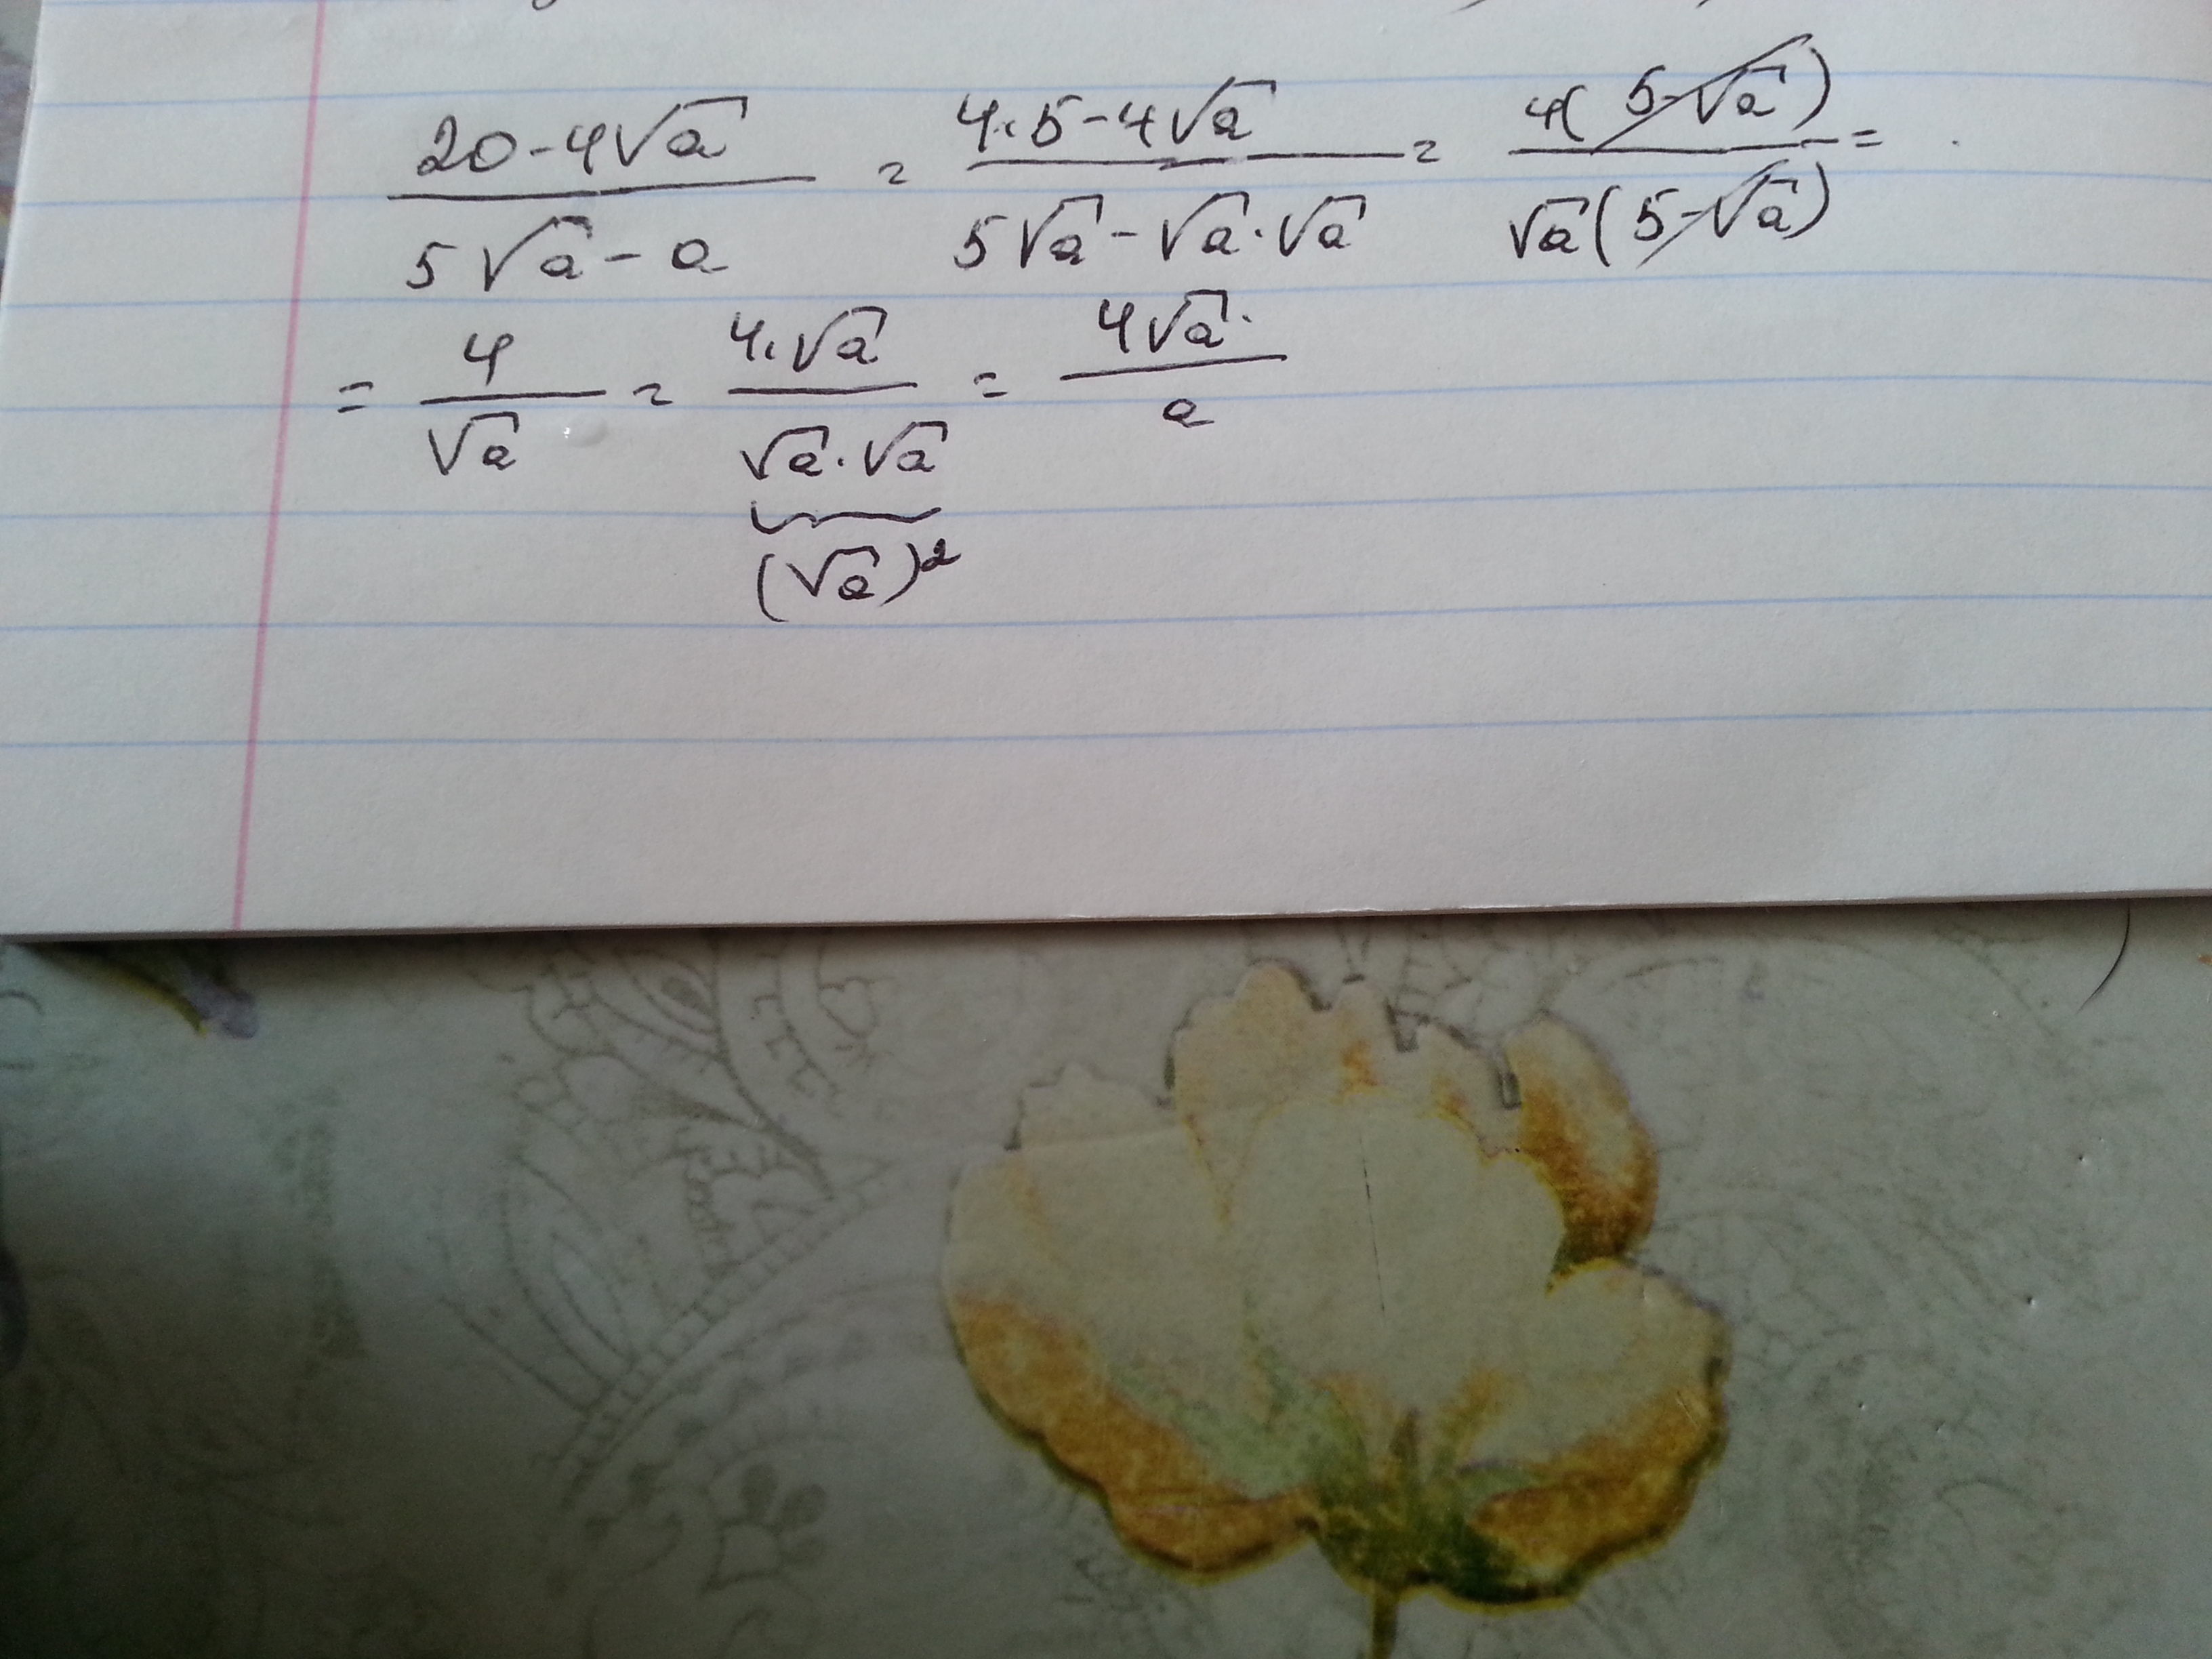 (20-4√a)/(5√a-a) = (4·5-4√a)/(5√a-√a·√a) = 4(5-√a)/√a(5-√a) =
= 4/√a = 4·√a/√a·√a = 4√a/a
(√a)²